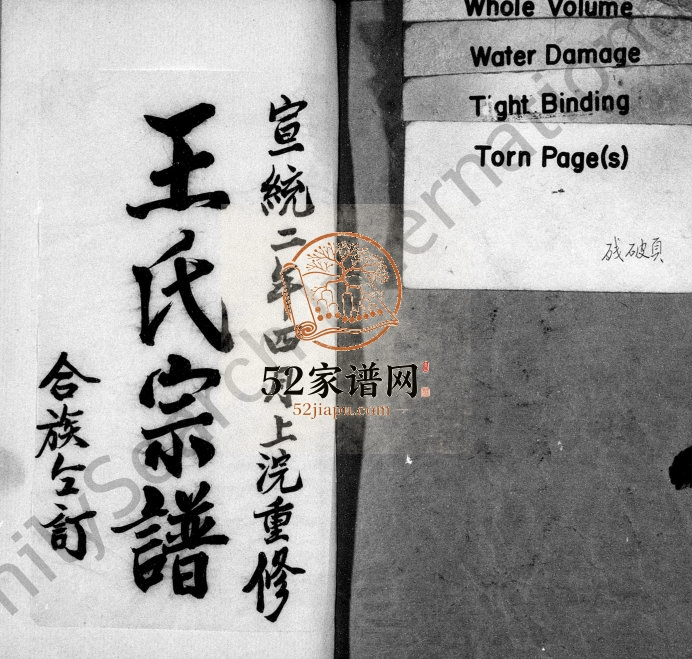 宣統二年四月上浣重修
王氏宗譜
合族仝訂
Whole Volume
Water Damage
Tight Binding
Torn Page(s)
残破頁
52家谱网
52jiapu.com